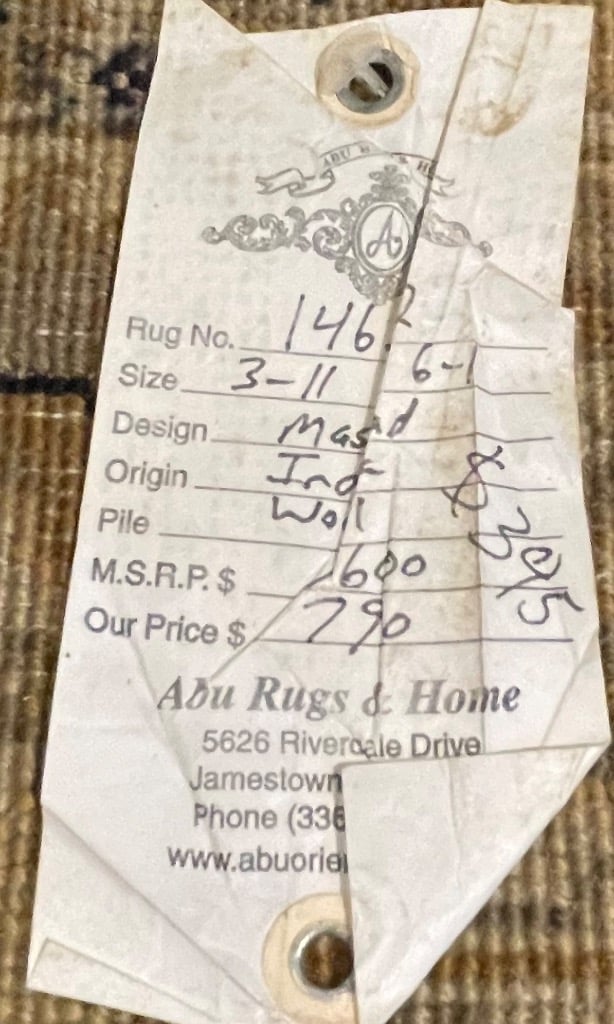 ABU
A
Rug No. 146
Size 3-11 6-1
Design
Origin
Pile Woll
M.S.R.P. $ 600
Our Price $ 790
$ 395
Abu Rugs & Home
5626 Riverdale Drive
Jamestown
Phone (336
www.abuorie